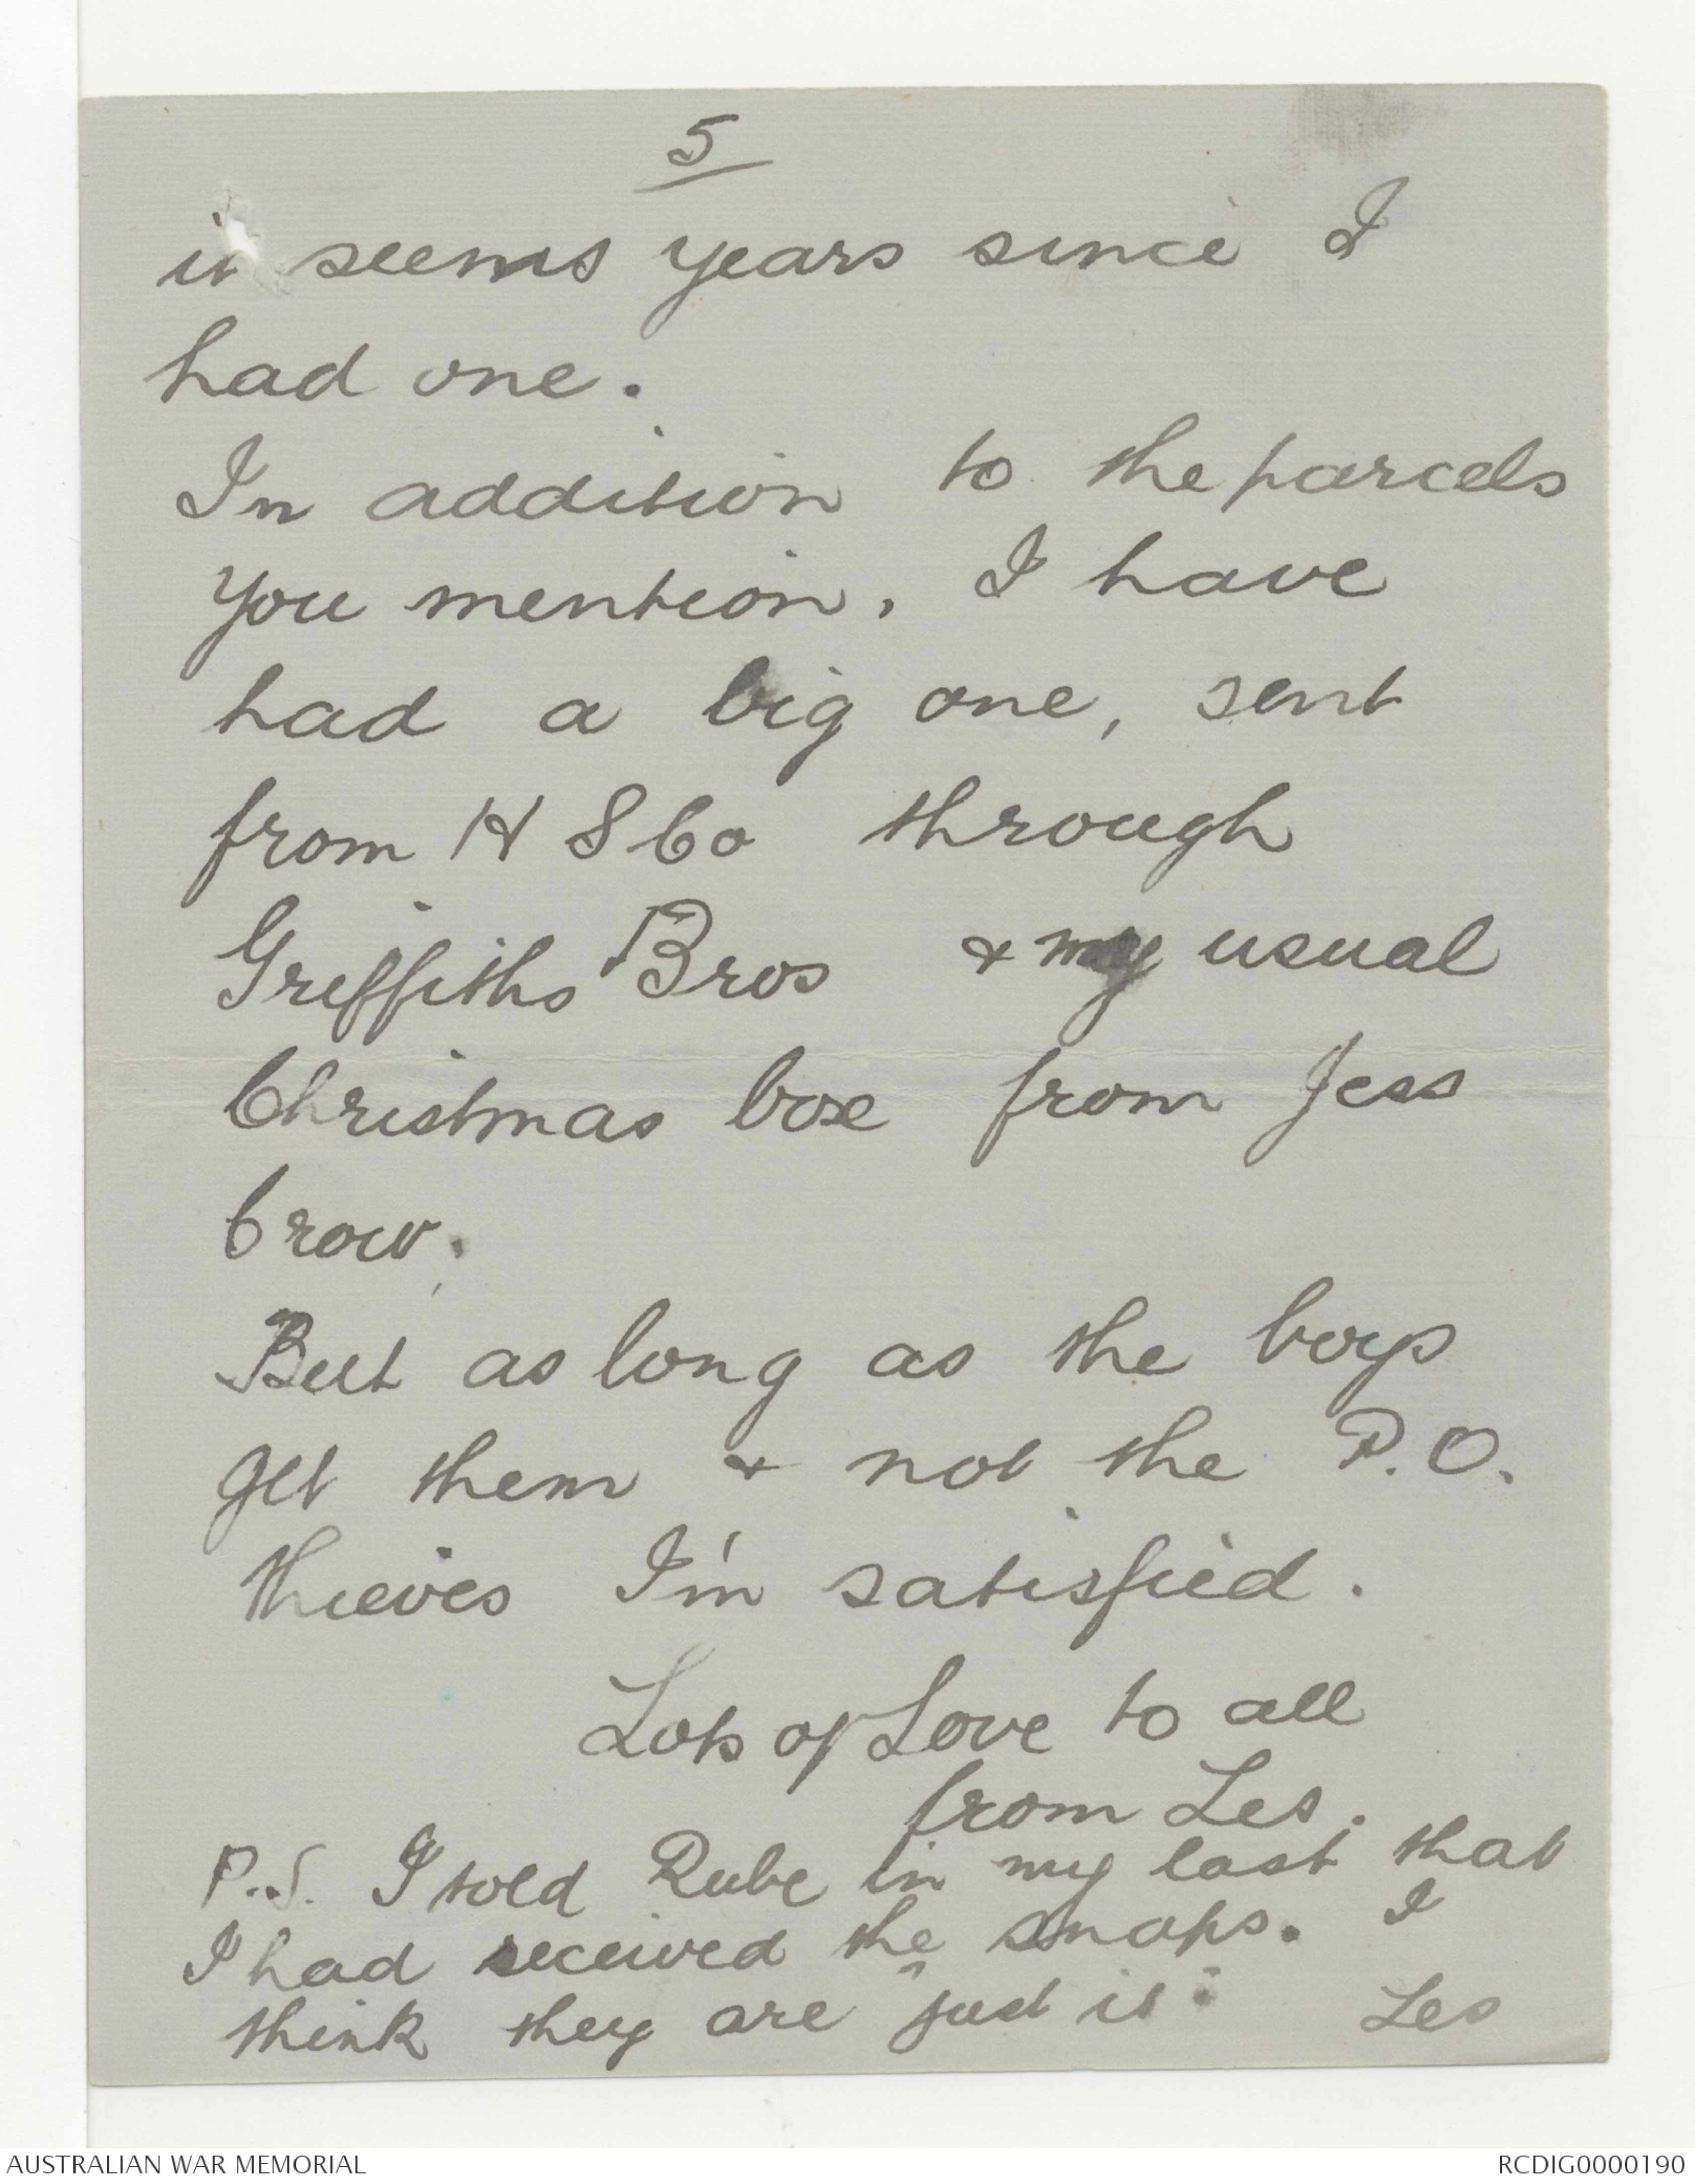 5
it seems years since I
had one.
In addition to the parcels
you mention, I have
had a big one, sent
from H S Co through
Griffiths Bros & my usual
Christmas box from Jess
Crow.
But as long as the boys
get them & not the P.O.
thieves I'm satisfied.
Lots of Love to all
from Les.
P.S. I told Rube in my last that
I had received the snaps. I
think they are "just it" Les
AUSTRALIAN WAR MEMORIAL
RCDIG0000190